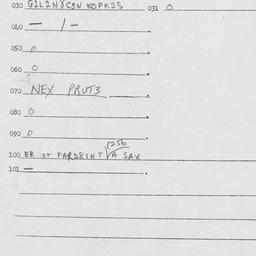 030 G1L2NYC3N KOPK25 032 0
040 — / —
050 0
060 0
070 NEY PRUT3
080 0
090 0
100 ER OT FARDRINT (256 A SAX
102 —